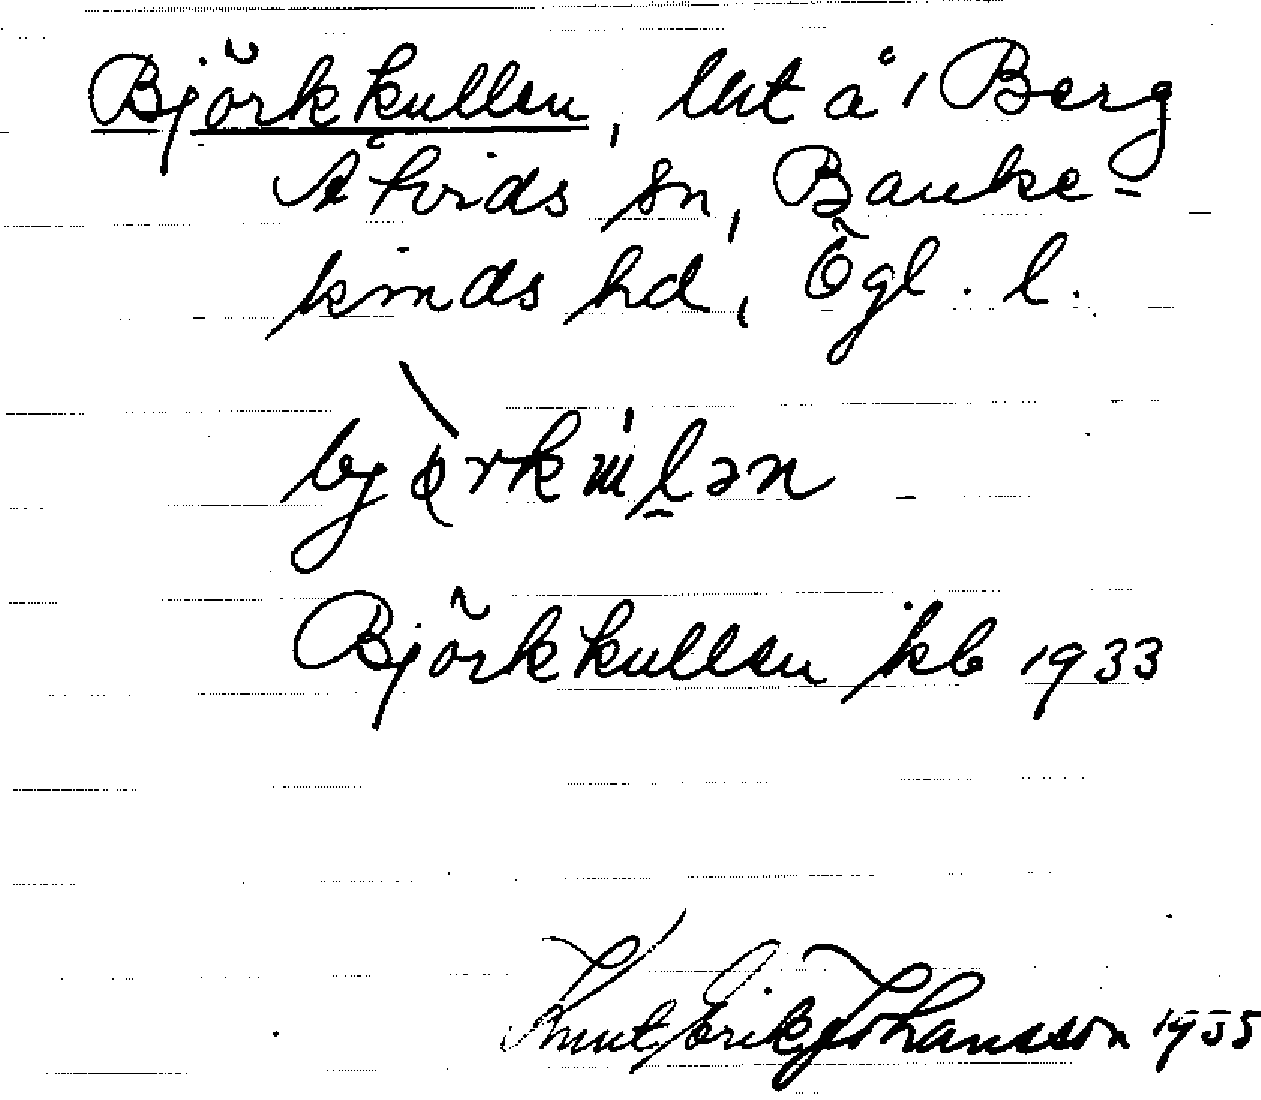 Björkkullen, lht å 1 Berg
Åtvids sn, Banke-
kinds hd, Ögl. l.
Björkkullen kb 1933
Knut Erik Johansson 1935